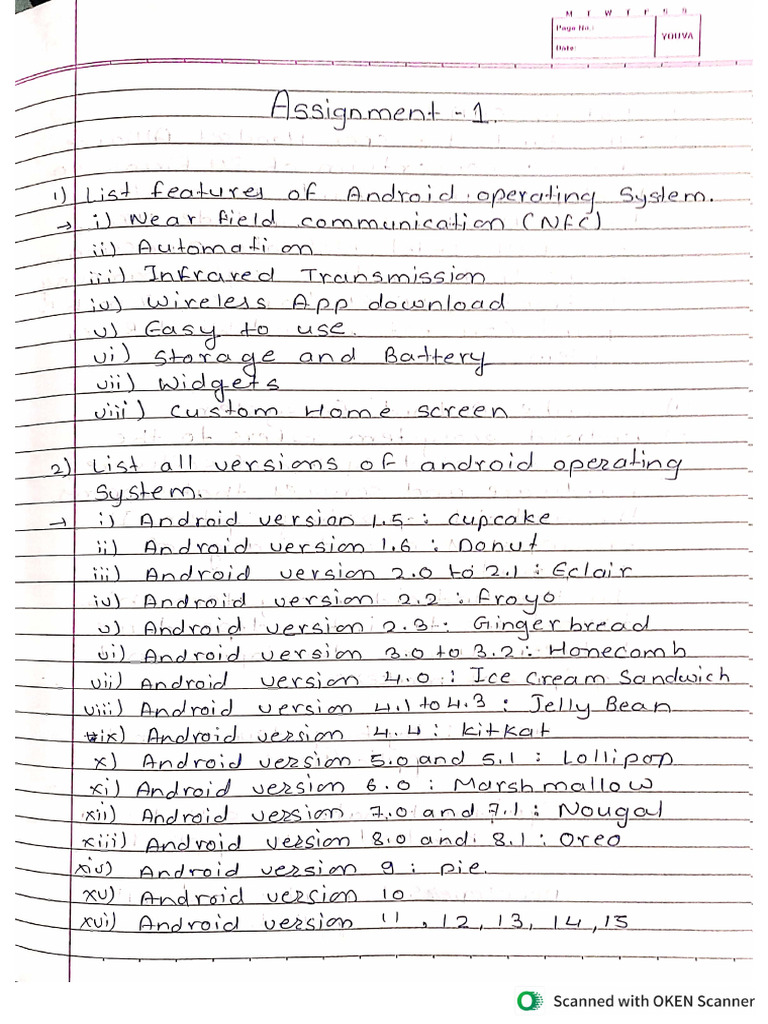 M T W T F S S
Page No.:
YOUVA
Date:
Assignment - 1.
1) List features of Android operating System.
→ i) Near field communication (NFC)
ii) Automation
iii) Infrared Transmission
iv) Wireless App download
v) Easy to use.
vi) Storage and Battery
vii) Widgets
viii) Custom Home screen
2) List all versions of android operating
System.
→ i) Android version 1.5 : Cupcake
ii) Android version 1.6 : Donut
iii) Android version 2.0 to 2.1 : Eclair
iv) Android version 2.2 : Froyo
v) Android version 2.3 : Gingerbread
vi) Android version 3.0 to 3.2 : Honecomb
vii) Android version 4.0 : Ice Cream Sandwich
viii) Android version 4.1 to 4.3 : Jelly Bean
ix) Android version 4.4 : KitKat
x) Android version 5.0 and 5.1 : Lollipop
xi) Android version 6.0 : Marshmallow
xii) Android version 7.0 and 7.1 : Nougal
xiii) Android version 8.0 and 8.1 : Oreo
xiv) Android version 9 : pie.
xv) Android version 10
xvi) Android version 11, 12, 13, 14, 15
Scanned with OKEN Scanner